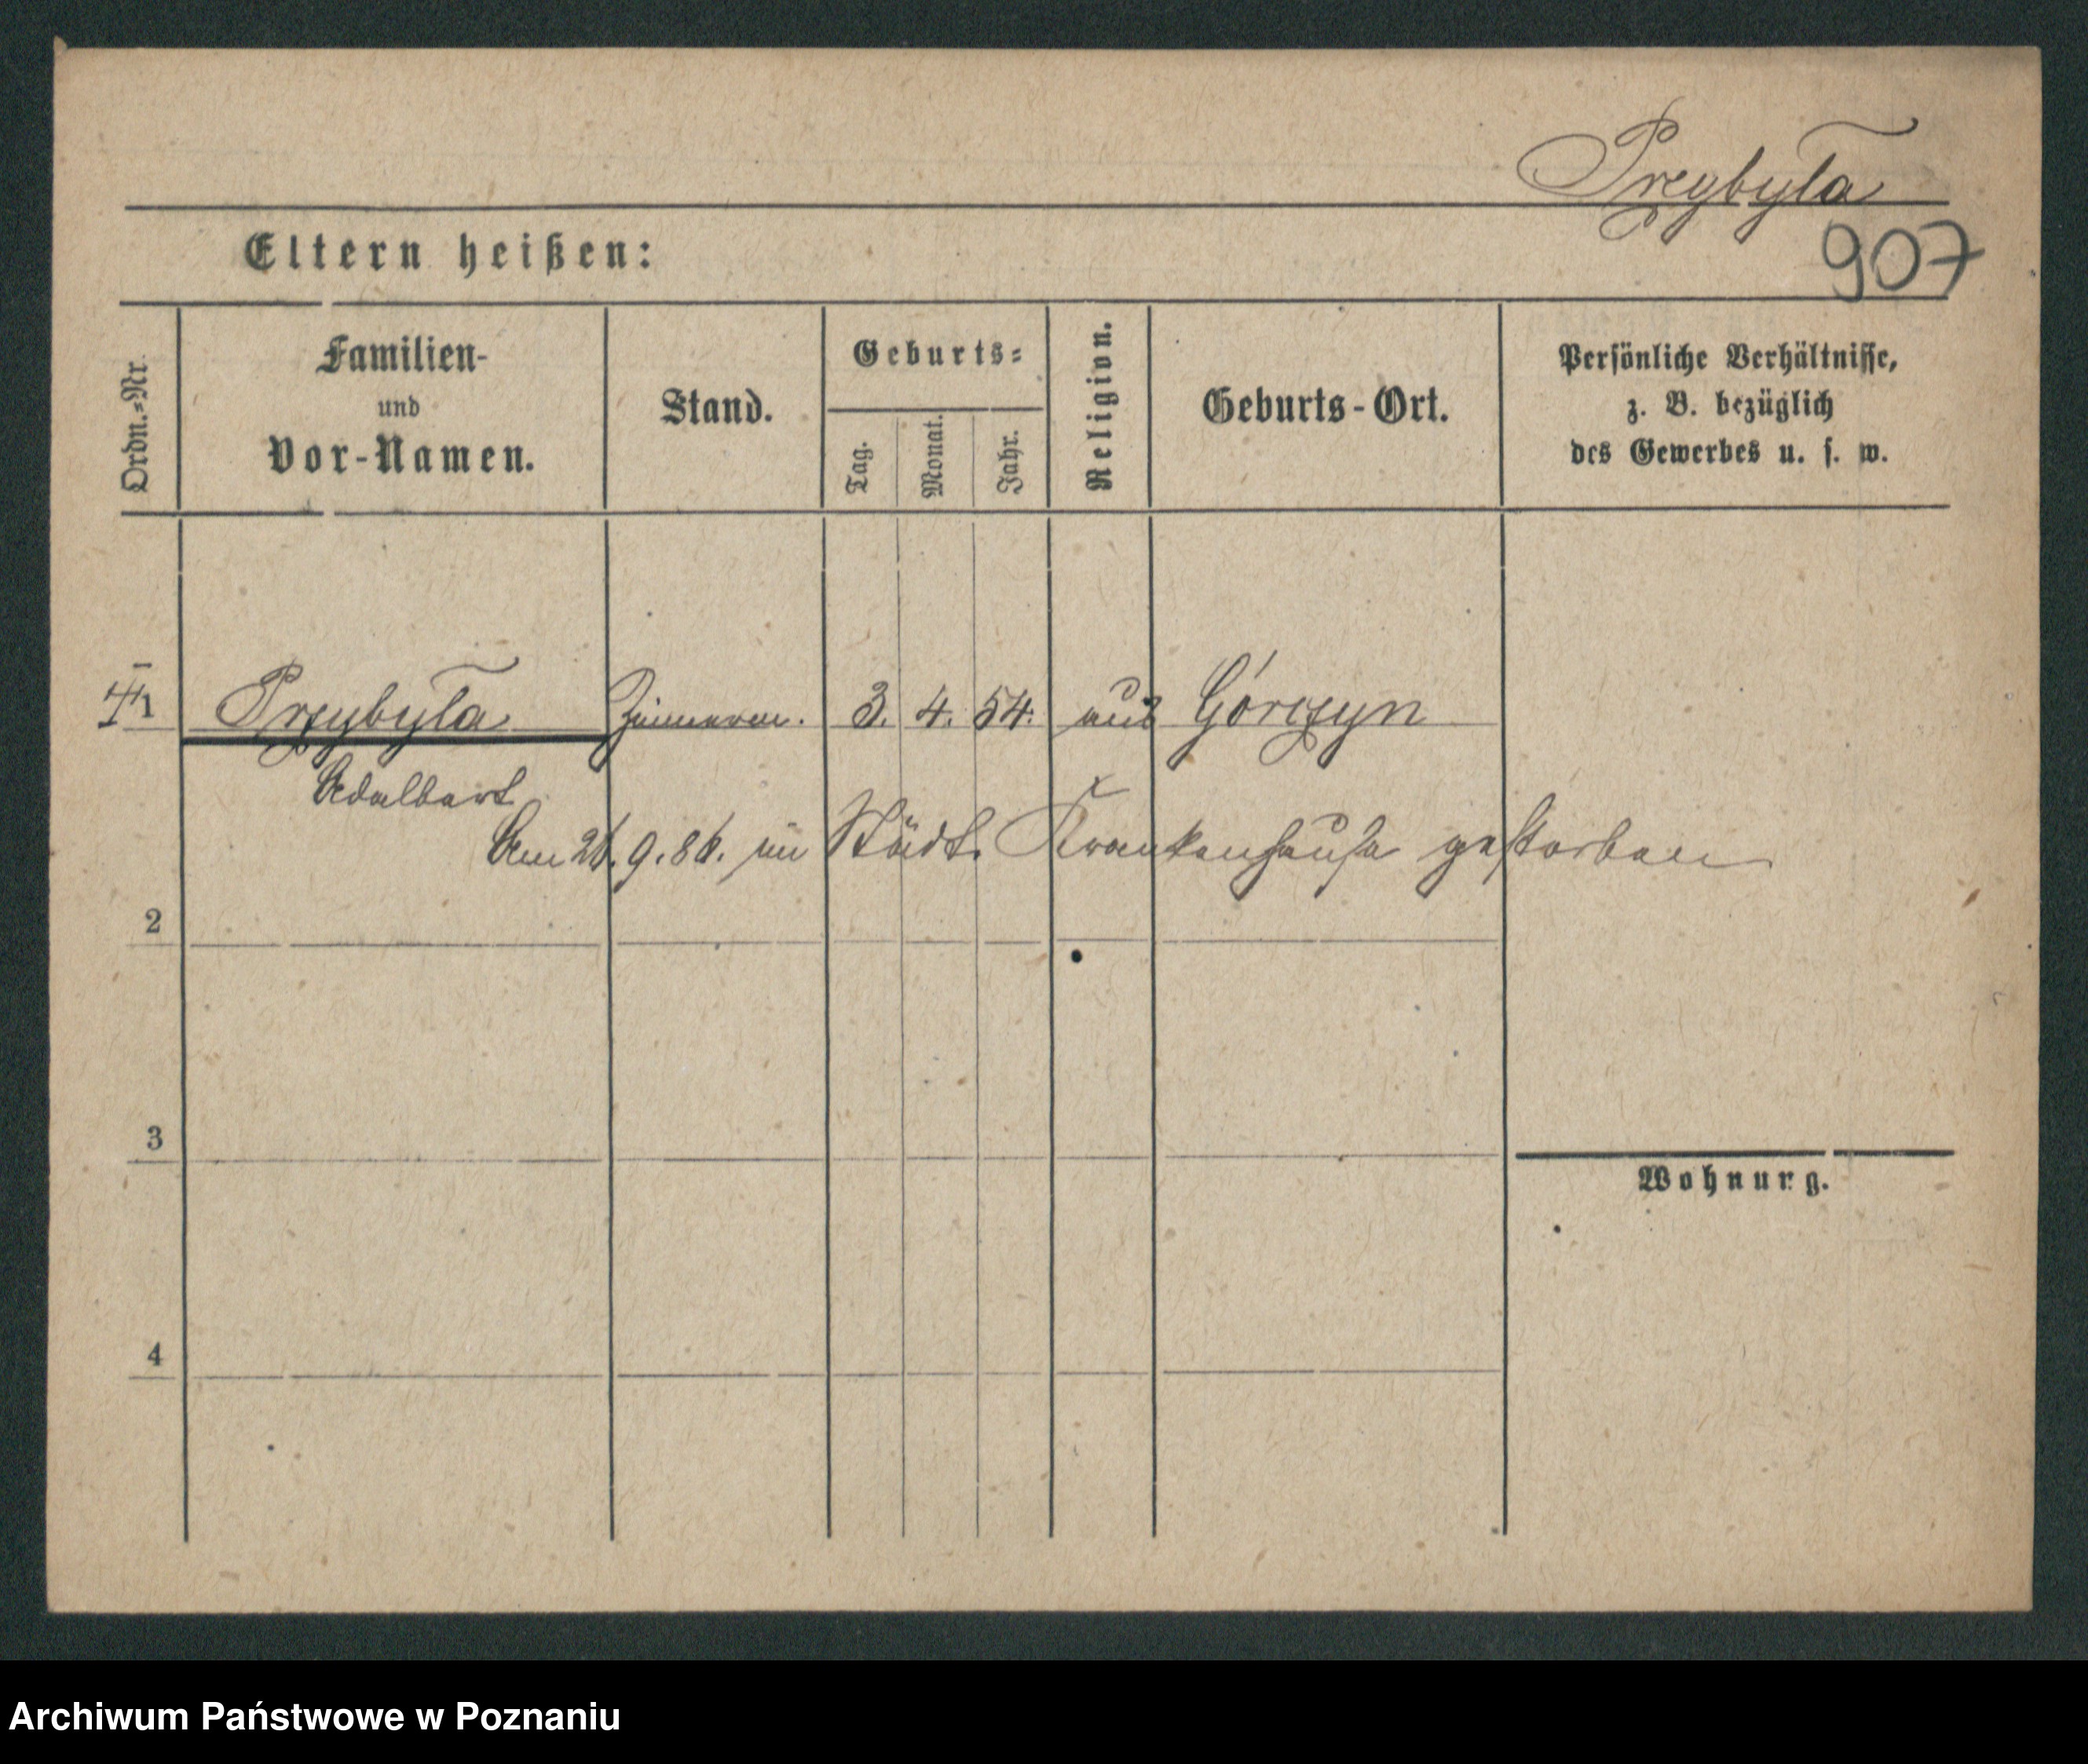 Przybyla
907
Eltern heißen:
Ordn.=Nr.
Familien-
und
Vor-Namen.
Stand.
Geburts=
Tag.
Monat.
Jahr.
Religion.
Geburts-Ort.
Persönliche Verhältnisse,
z. B. bezüglich
des Gewerbes u. s. w.
1 Przybyla Zimmerm. 3. 4. 54. aus Górczyn
Adalbert
Am 26. 9. 86. im Städt. Krankenhause gestorben
2
3
Wohnung.
4
Archiwum Państwowe w Poznaniu